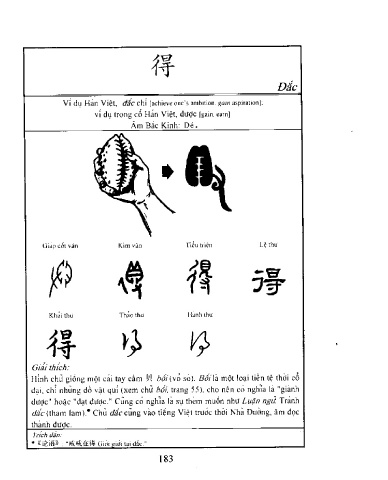 得
Đắc
Ví dụ Hán Việt, đắc chí [achieve one's ambition, gain aspiration],
ví dụ trong cổ Hán Việt, được [gain, earn]
Âm Bắc Kinh: Dé.
Giáp cốt văn Kim văn Tiểu triện Lệ thư
得
Khải thư Thảo thư Hành thư
得
Giải thích:
Hình chữ giống một cái tay cầm 貝 bối (vỏ sò). Bối là một loại tiền tệ thời cổ
đại, chỉ những đồ vật quí (xem chữ bối, trang 55), cho nên có nghĩa là "giành
được" hoặc "đạt được." Cũng có nghĩa là sự thèm muốn như Luận ngữ: Tranh
đắc (tham lam).* Chữ đắc cũng vào tiếng Việt trước thời Nhà Đường, âm đọc
thành được.
Trích dẫn:
Giới giới tại đắc."
183